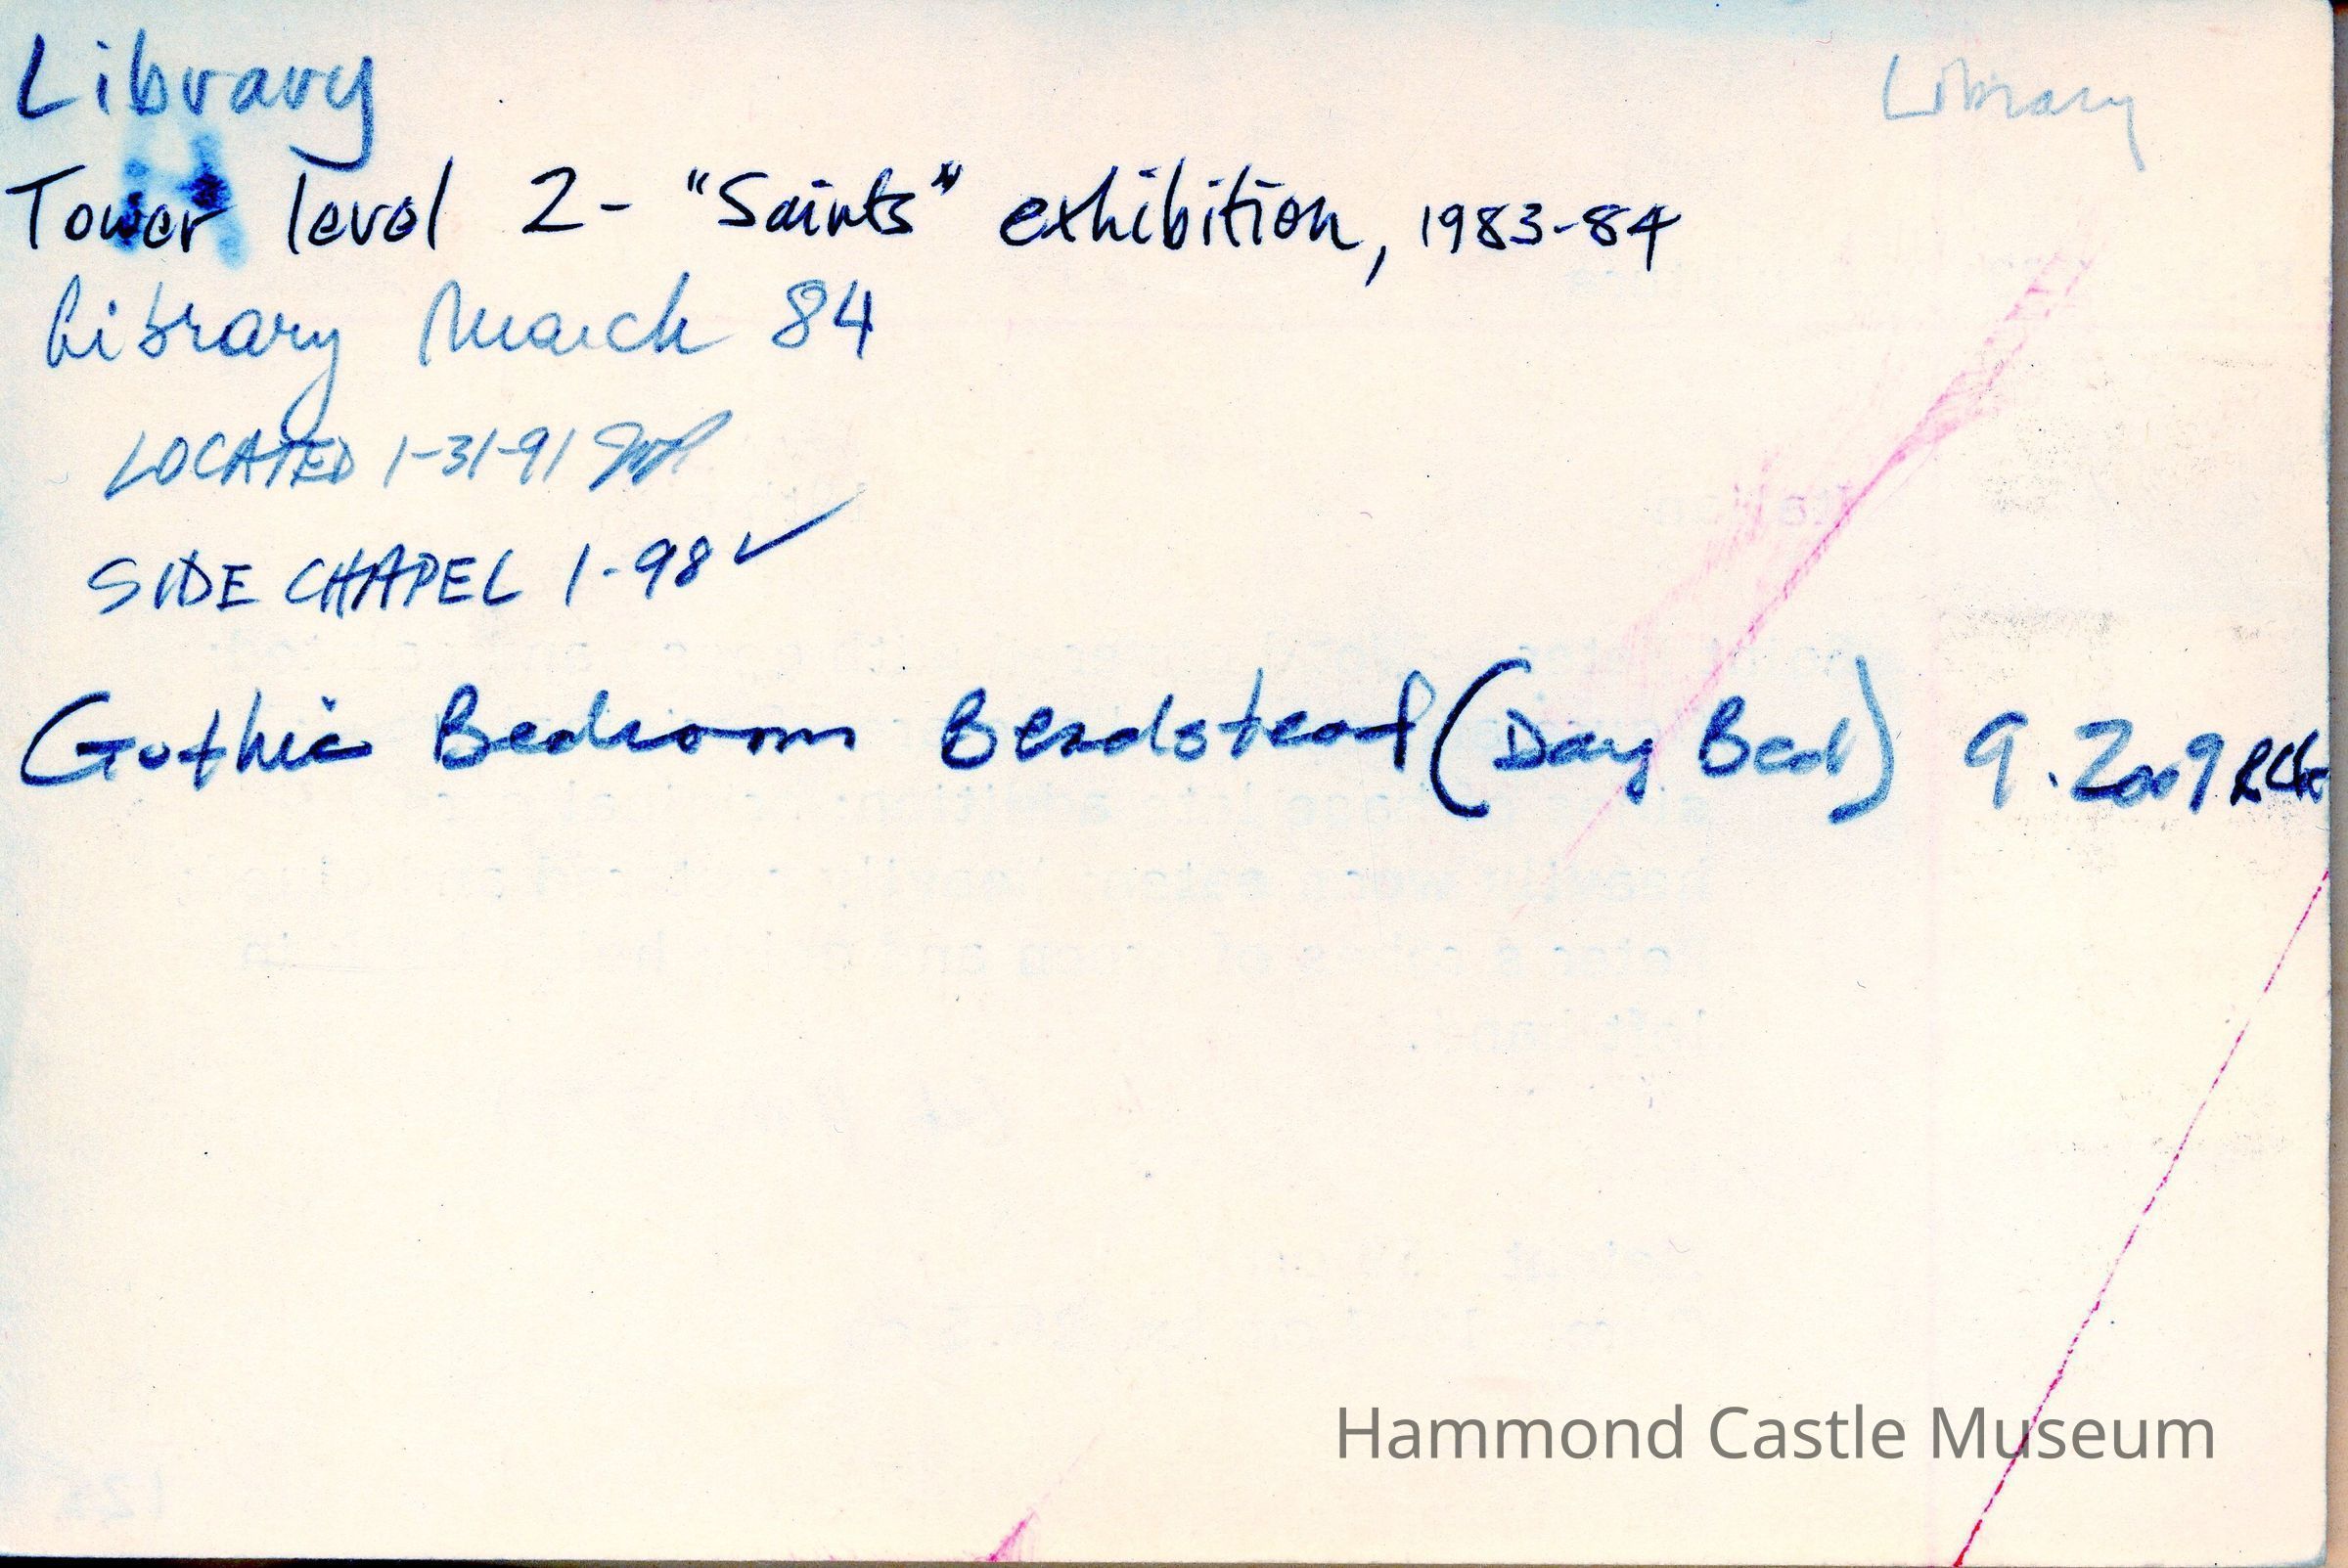 Library
Library
Tower level 2 - "Saints" exhibition, 1983-84
Library March 84
LOCATED 1-31-91
SIDE CHAPEL 1-98 ✓
Gothic Bedroom Beadstead (Day Bed) 9.2009
Hammond Castle Museum